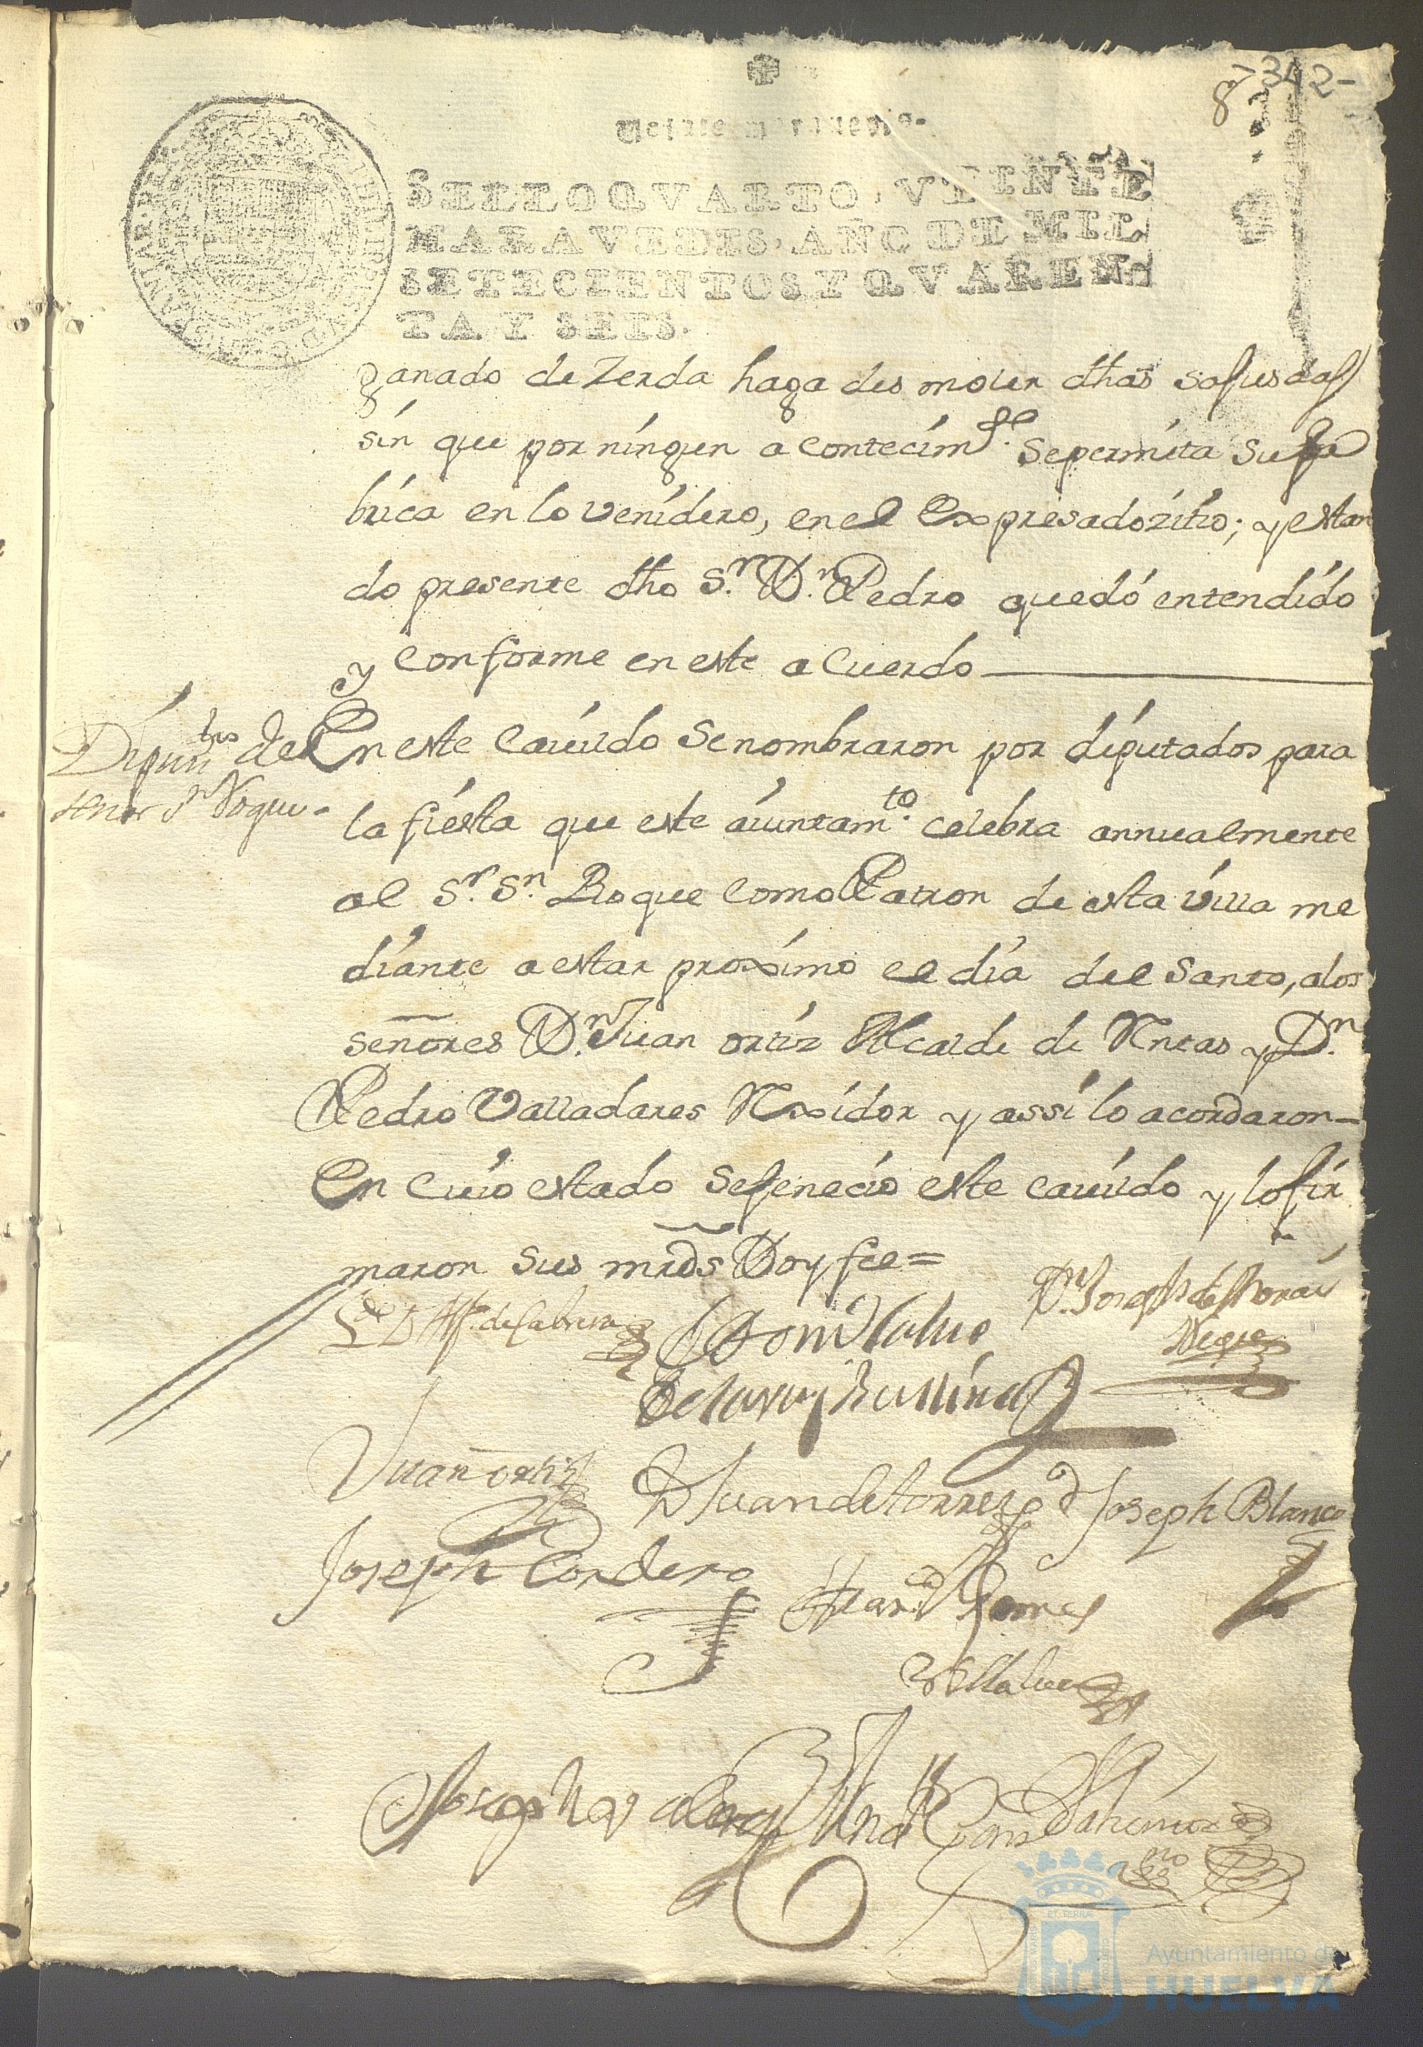 8 342-
Veinte maravedis.
SELLO QVARTO, VEINTE
MARAVEDIS, AÑO DE MIL
SETECIENTOS Y QVAREN
TA Y SEIS.
ganado de Zerda haga des moler dhas
sin que por ningun acontecim.to se permita su fa
brica en lo venidero, en el expresado zitio; y estan
do presente dho S.r D.n Pedro quedó entendido
y conforme en este acuerdo
Diputtdos de el
Señor Sn Roque.
En este cavildo se nombraron por diputados para
la fiesta que este aiuntam.to celebra annualmente
al S.r S.n Roque como Patron de esta villa me
diante a estar proximo el dia del santo, a los
señores D.n Juan ortiz Alcalde de Rntas y D.n
Pedro Valladares Rexidor y assi lo acordaron
En cuio estado se feneció este cavildo y lo fir
maron sus mrds Doy fee=
D.n Joseph de
Juan ortiz
D Juan de torres
Joseph Blanco
Joseph Cordero
Gomes
Joseph
Ayuntamiento de
HUELVA